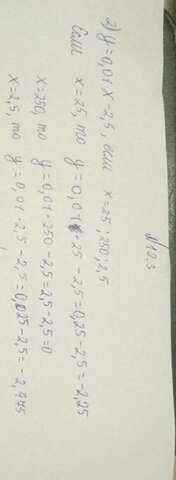 №12.3
2) y=0,01x-2,5, если x=25; 250; 2,5
Если x=25, то y=0,01·25-2,5=0,25-2,5=-2,25
x=250, то y=0,01·250-2,5=2,5-2,5=0
x=2,5, то y=0,01·2,5-2,5=0,025-2,5=-2,475